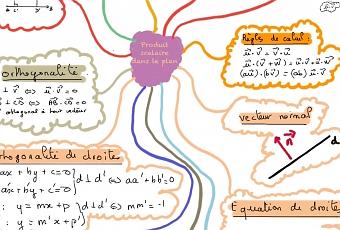 Produit
scalaire
dans le plan
Règles de calcul :
u⃗·v⃗ = v⃗·u⃗
u⃗·(v⃗+w⃗) = u⃗·v⃗+u⃗·w⃗
(au⃗)·(bv⃗) = (ab) u⃗·v⃗
orthogonalité.
⊥ v⃗ ⇔ u⃗·v⃗ = 0
⊥ CD ⇔ AB⃗·CD⃗ = 0
orthogonal à tout vecteur
vecteur normal
n⃗
d
thogonalité de droites
ax+by+c=0
a'x+b'y+c'=0
d⊥d' ⇔ aa'+bb'=0
: y = mx+p
: y = m'x+p'
d⊥d' ⇔ mm' = -1
Equation de droite